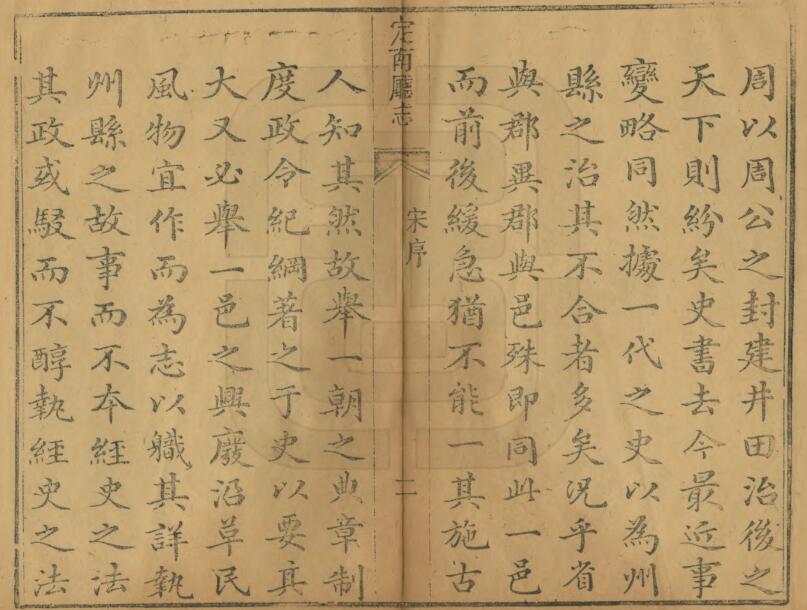 周以周公之封建井田治後之
天下則紛矣史書去今最近事
變略同然據一代之史以為州
縣之治其不合者多矣況乎省
與郡異郡與邑殊即同此一邑
而前後緩急猶不能一其施古
定南廳志
宋序
二
人知其然故舉一朝之典章制
度政令紀綱著之于史以要其
大又必舉一邑之興廢沿革民
風物宜作而為志以職其詳執
州縣之故事而不本經史之法
其政或駁而不醇執經史之法